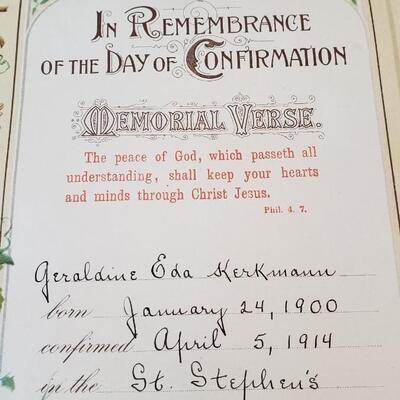 In Remembrance
of the Day of Confirmation
Memorial Verse.
The peace of God, which passeth all
understanding, shall keep your hearts
and minds through Christ Jesus.
Phil. 4. 7.
Geraldine Eda Kerkmann
born January 24, 1900
confirmed April 5, 1914
in the St. Stephen's